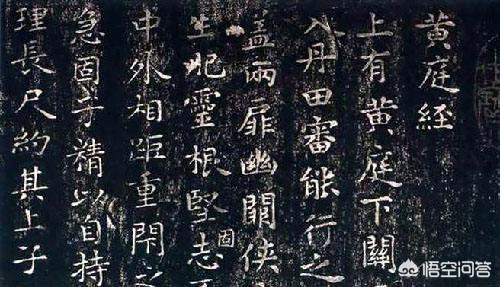 黄庭経
上有黄庭下關
入丹田審能行之
盖兩扉幽闕俠
生肥靈根堅固志
中外相距重閇之
急固子精以自持
理長尺約其上子
悟空问答